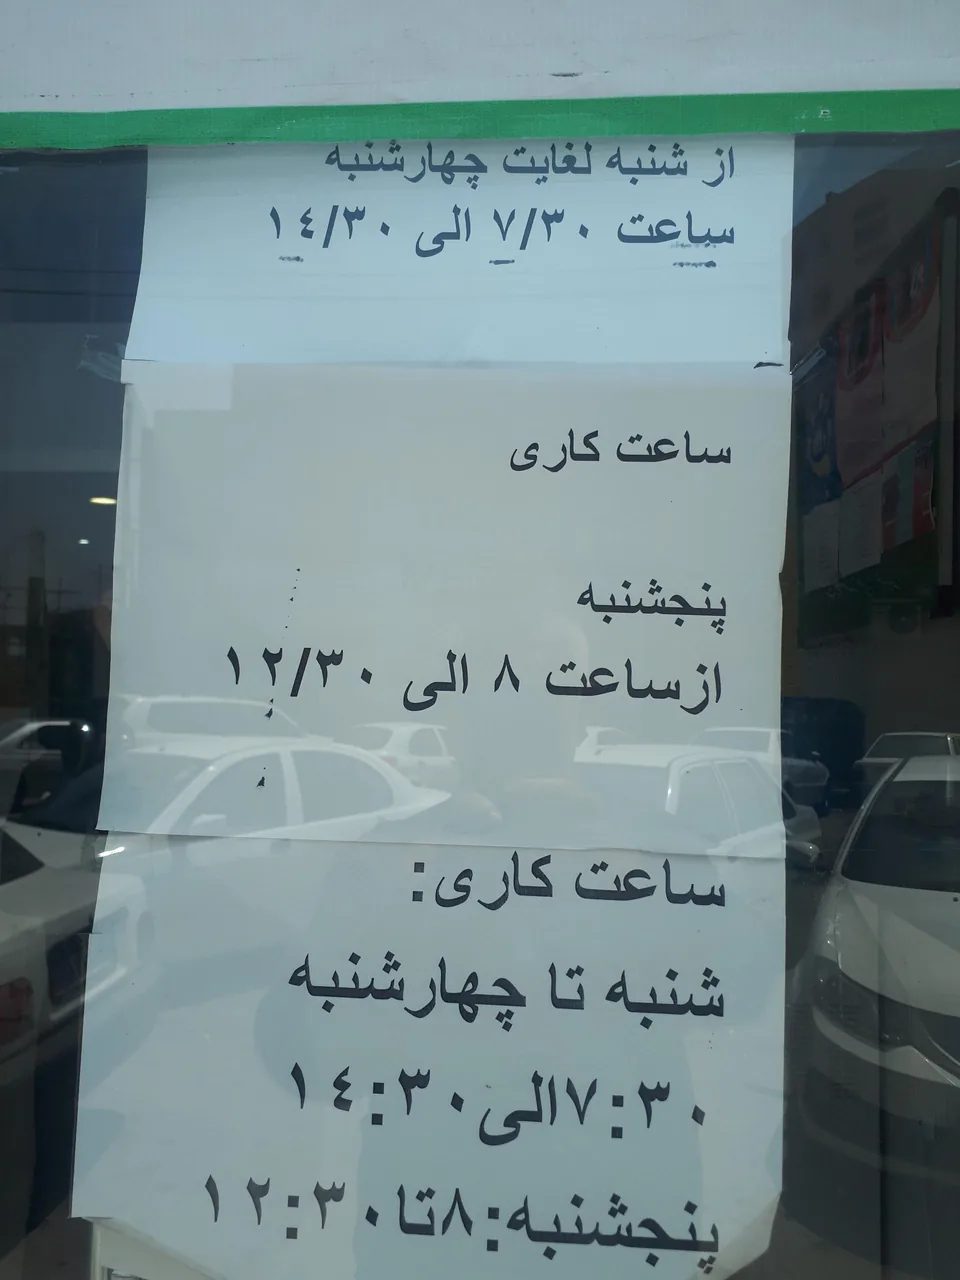 از شنبه لغایت چهارشنبه
ساعت ۷/۳۰ الی ۱٤/۳۰
ساعت کاری
پنجشنبه
ازساعت ۸ الی ۱۲/۳۰
ساعت کاری:
شنبه تا چهارشنبه
۷:۳۰الی۱٤:۳۰
پنجشنبه:۸تا۱۲:۳۰